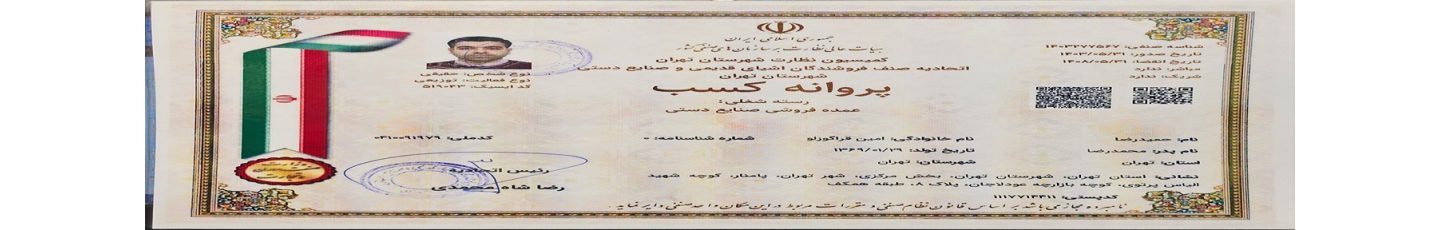 جمهوری اسلامی ایران
هیات عالی نظارت بر سازمان‌های صنفی کشور
کمیسیون نظارت شهرستان تهران
اتحادیه صنف فروشندگان اشیای قدیمی و صنایع دستی
شهرستان تهران
پروانه کسب
رسته شغلی:
عمده فروشی صنایع دستی
شناسه صنفی: ۱۴۰۳۲۷۷۵۶۷
تاریخ صدور: ۱۴۰۳/۰۵/۳۱
تاریخ انقضا: ۱۴۰۸/۰۵/۳۱
مباشر: ندارد
شریک: ندارد
نوع شخص: حقیقی
نوع فعالیت: توزیعی
کد آیسیک: ۵۱۹۰۴۳
نام: حمیدرضا نام خانوادگی: امین قراگوزلو شماره شناسنامه: ۰ کدملی: ۰۳۱۰۰۹۱۹۷۹
نام پدر: محمدرضا تاریخ تولد: ۱۳۶۹/۰۱/۲۹
استان: تهران شهرستان: تهران
نشانی: استان تهران، شهرستان تهران، بخش مرکزی، شهر تهران، پامنار، کوچه شهید
الیاس پرتوی، کوچه بازارچه عودلاجان، پلاک ۸، طبقه همکف
کدپستی: ۱۱۱۷۷۱۳۳۱۱
نامبرده مجاز می باشد بر اساس قانون نظام صنفی و مقررات مربوط در این مکان واحد صنفی دایر نماید.
رئیس اتحادیه
رضا شاه محمدی